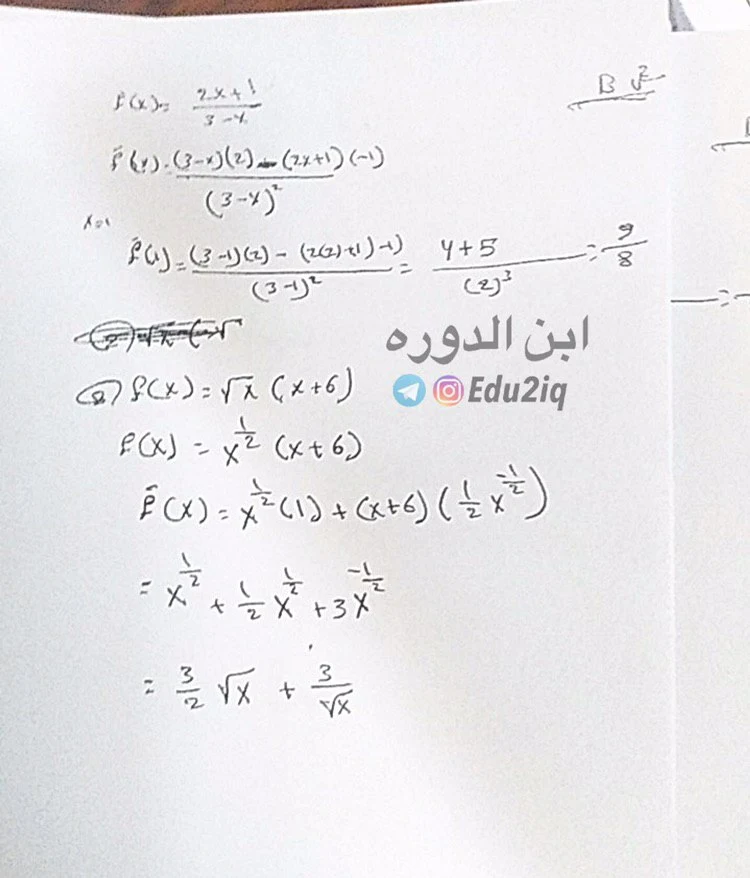 B √2
f(x) = (2x+1)/(3-x)
f̄(x) = ((3-x)(2) - (2x+1)(-1))/(3-x)²
f̄(1) = ((3-1)(2) - (2(2)+1)-1)/(3-1)² = (4+5)/(2)³ = 9/8
ابن الدوره
Edu2iq
f(x) = √x (x+6)
f(x) = x^(1/2) (x+6)
f̄(x) = x^(1/2) (1) + (x+6) (1/2 x^(-1/2))
= x^(1/2) + 1/2 x^(1/2) + 3x^(-1/2)
= 3/2 √x + 3/√x